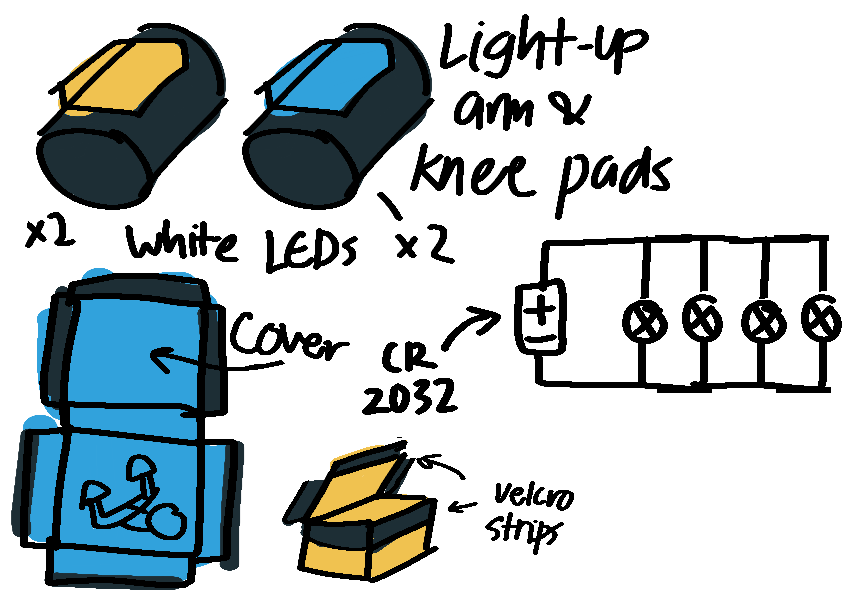 Light-up
arm &
knee pads
x2
White LEDs
x2
Cover
CR
2032
+
-
velcro
strips